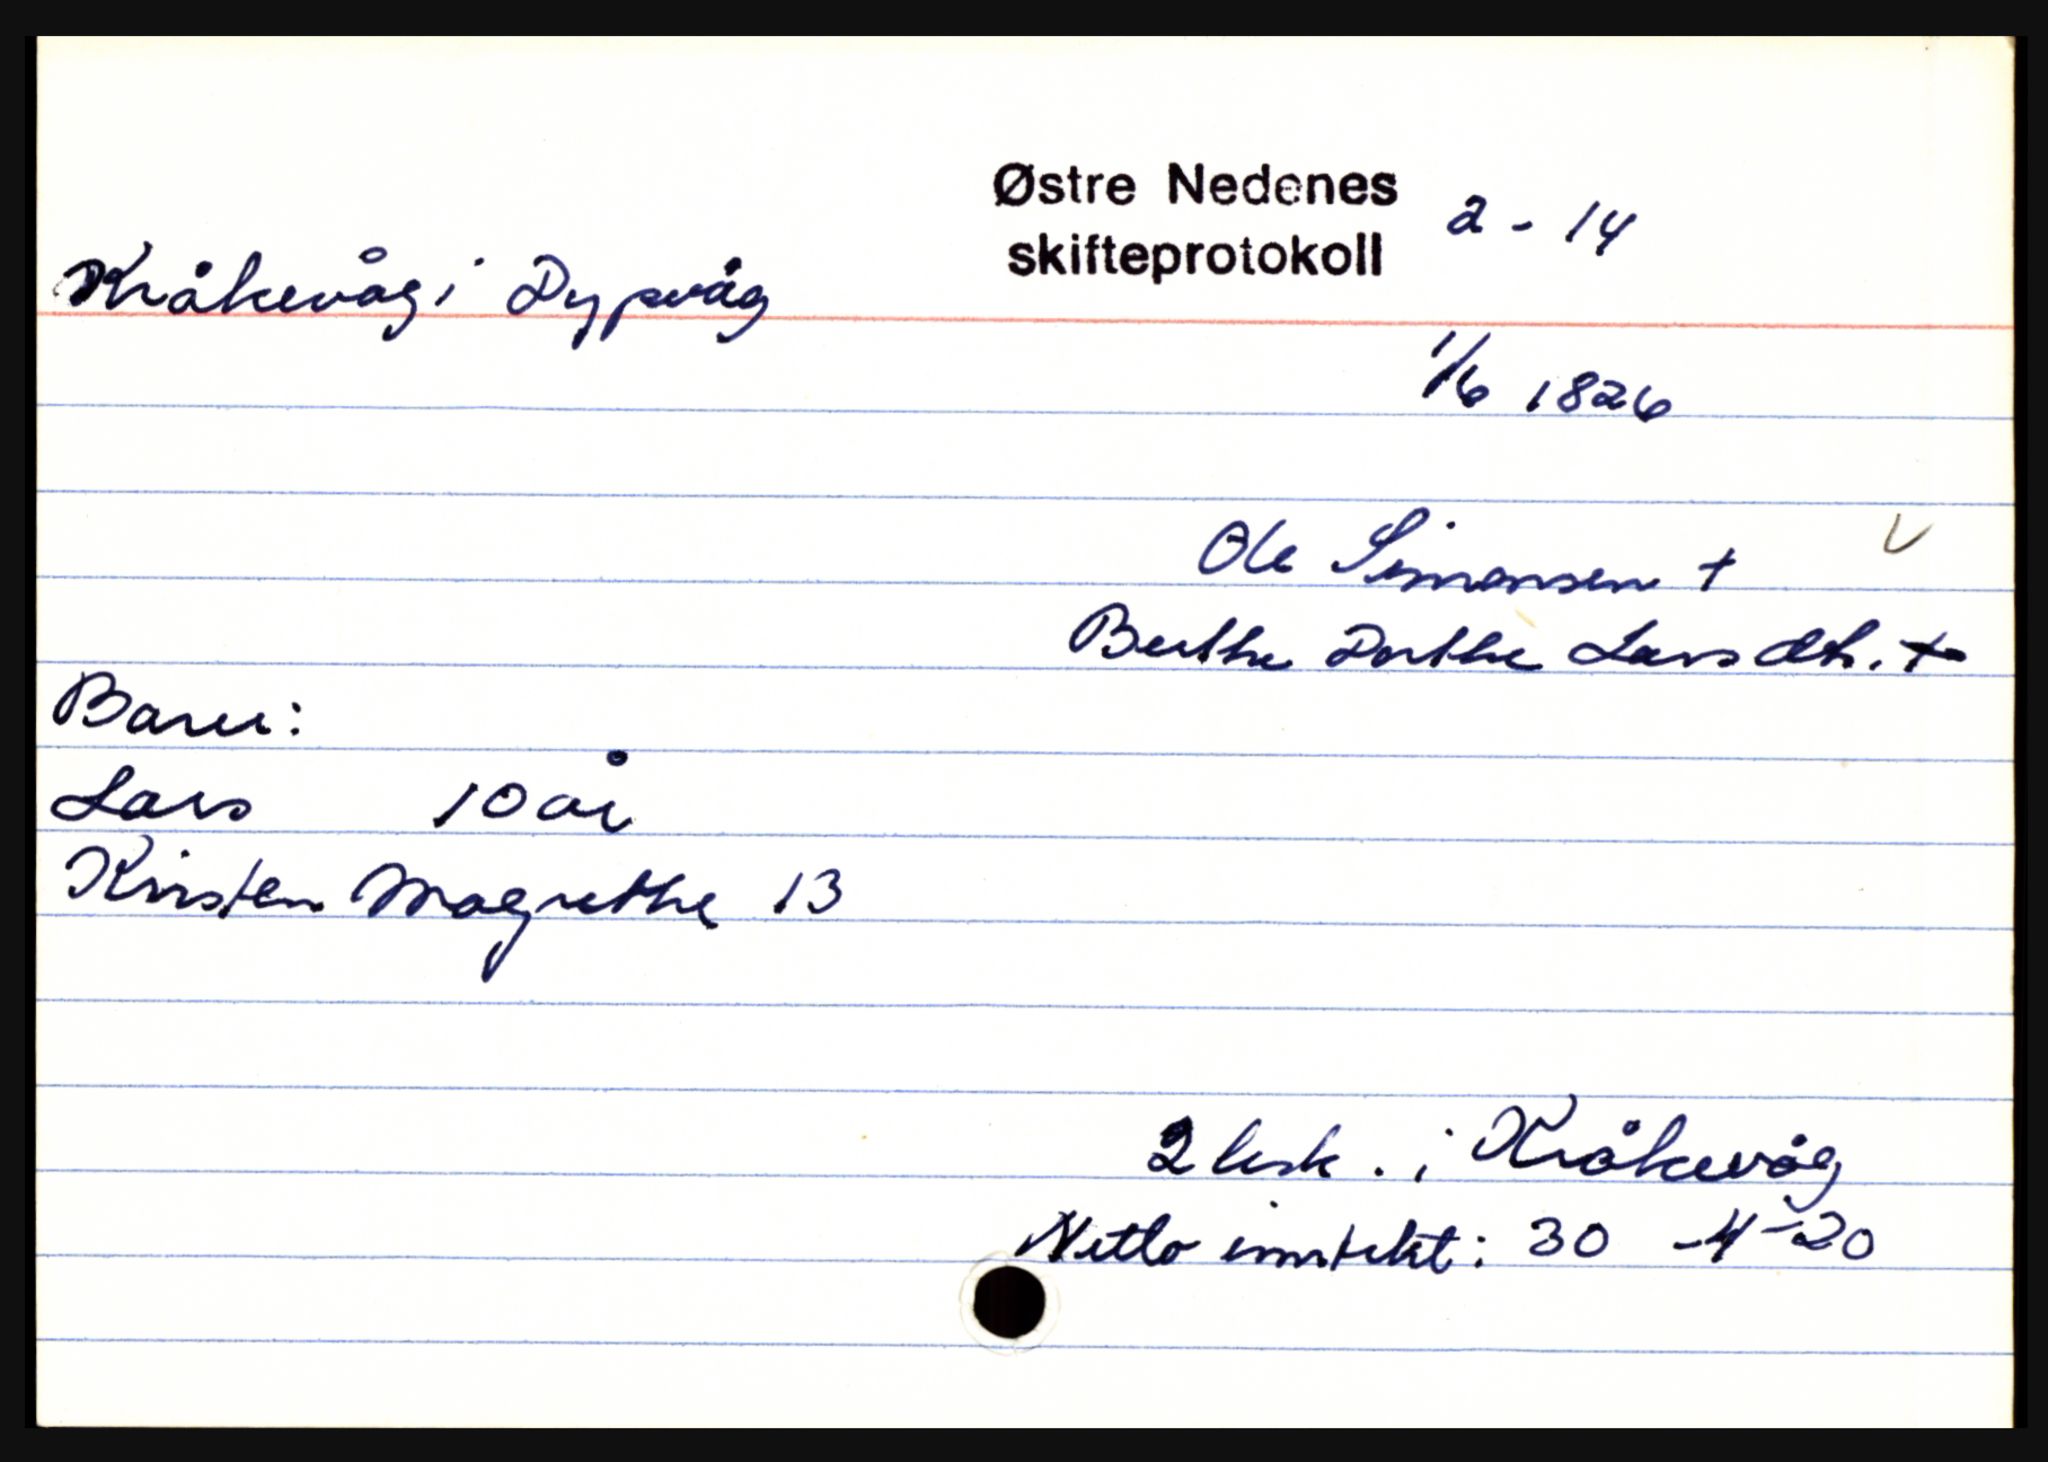 Østre Nedenes
skifteprotokoll 2 - 14
Kråkevåg i Dypvåg
1/6 1826
Ole Simonsen +
Berthe Dorthe Larsdtr. +
Barn:
Lars 10 år
Kirsten Magrethe 13
2 besk. i Kråkevåg
Netto inntekt: 30 - 4 - 20